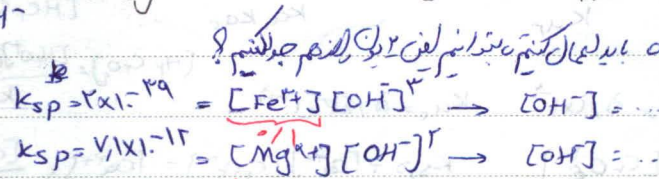 باید اعمال کنیم بتوانیم این ۲ یون را از هم جدا کنیم؟
Ksp = ۲×۱۰⁻³⁹ = [Fe³⁺][OH⁻]³ → [OH⁻] = ...
۰/۱
Ksp = ۷,۱×۱۰⁻¹² = [Mg²⁺][OH⁻]² → [OH⁻] = ...